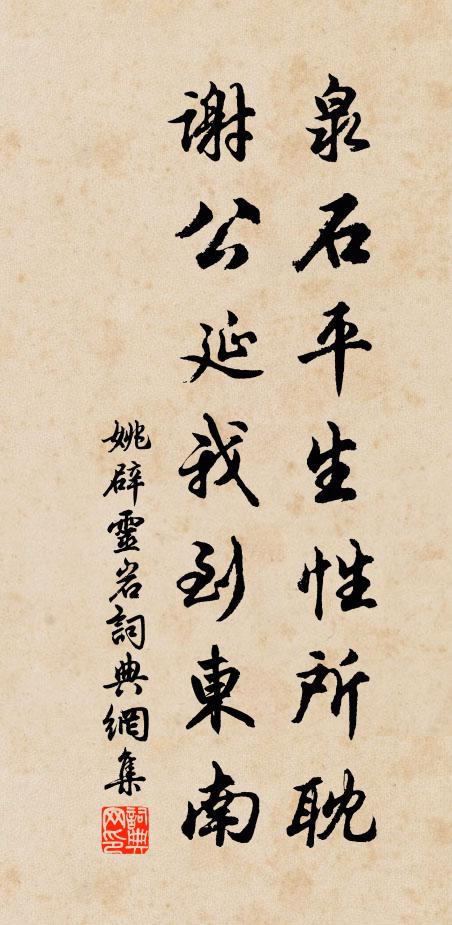 泉石平生性所耽
謝公延我到東南
姚辟靈岩詞典網集
詞典网印